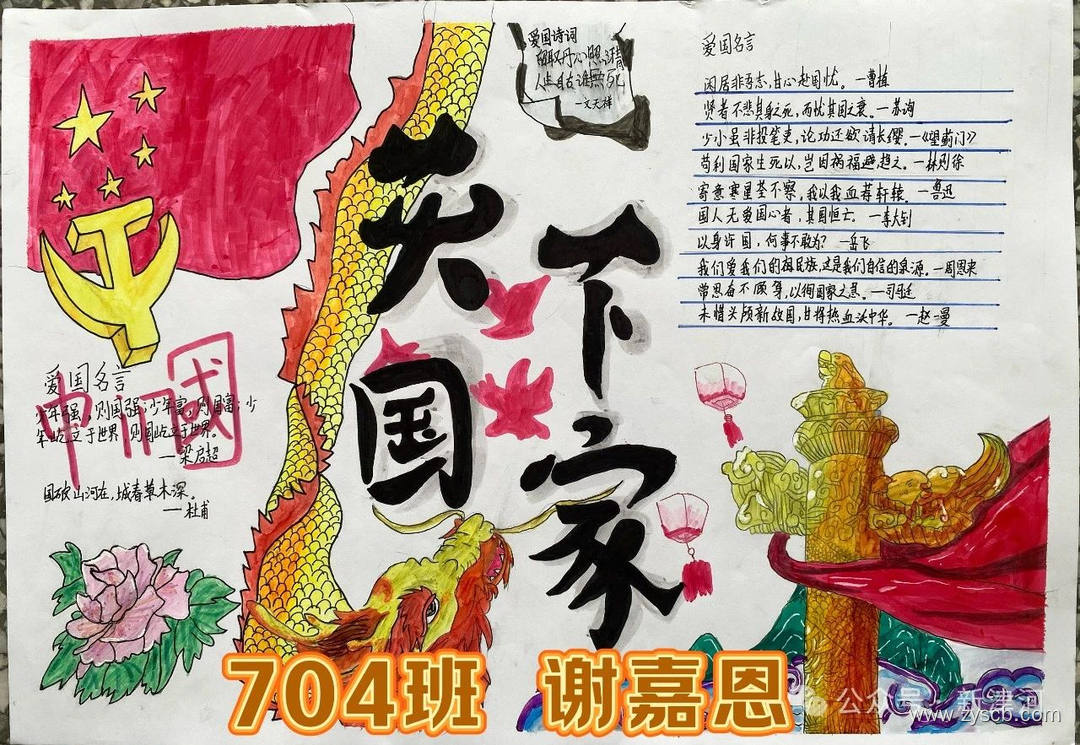 爱国诗词
留取丹心照汗青
人生自古谁無死
—文天祥
国
下
家
爱国名言
闲居非吾志，甘心赴国忧。—曹植
贤者不悲其身之死，而忧其国之衰。—苏洵
少小虽非投笔吏，论功还欲请长缨。—《望蓟门》
苟利国家生死以，岂因祸福避趋之。—林则徐
寄意寒星荃不察，我以我血荐轩辕。—鲁迅
国人无爱国心者，其国恒亡。—李大钊
以身许国，何事不敢为？—岳飞
我们爱我们的祖民族，这是我们自信的泉源。—周恩来
常思奋不顾身，以徇国家之急。—司马迁
未惜头颅新故国，甘将热血沃中华。—赵一曼
中
國
爱国名言
少年强，则国强；少年富，则国富；少
年屹立于世界，则国屹立于世界。
—梁启超
国破山河在，城春草木深。
—杜甫
704班 谢嘉恩
公众号·新津河
www.zyscb.com